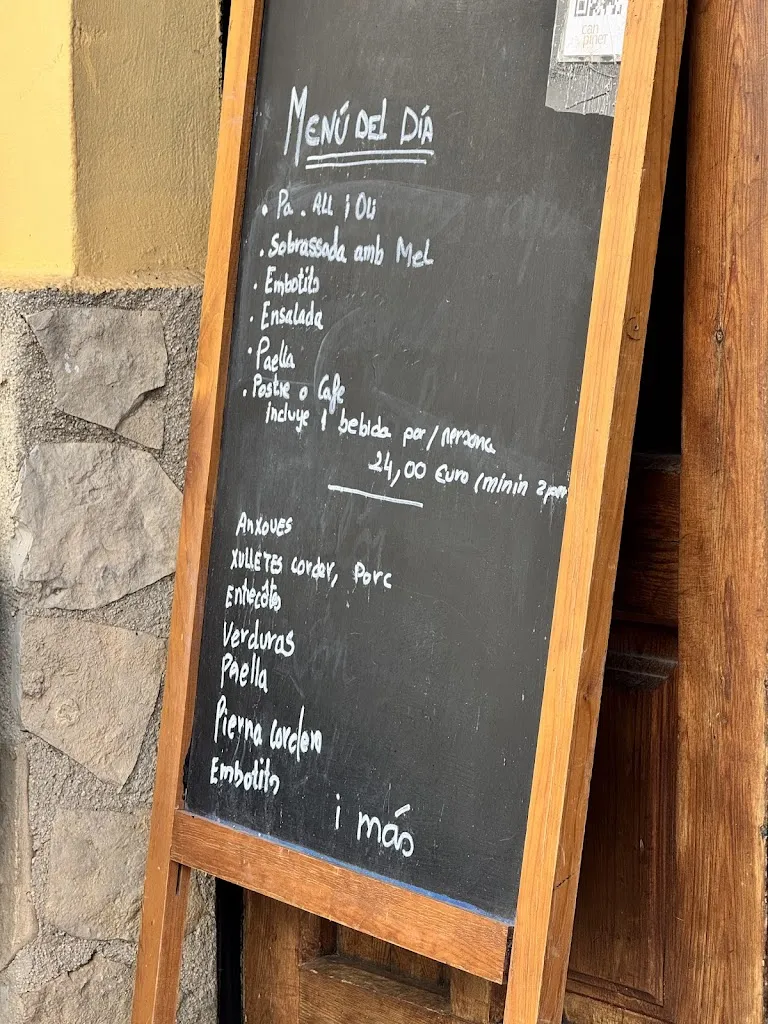 can
piner
MENÚ DEL DÍA
• Pa . ALL i OLi
. Sobrassada amb MEL
. Embotits
. Ensalada
. Paella
. Postre o Cafe
incluye 1 bebida por / persona
24,00 Euro / minin 2 per
ANXOVES
XULLETES corder, Porc
Entrecôtte
Verduras
Paella
Pierna cordero
Embotits
i más